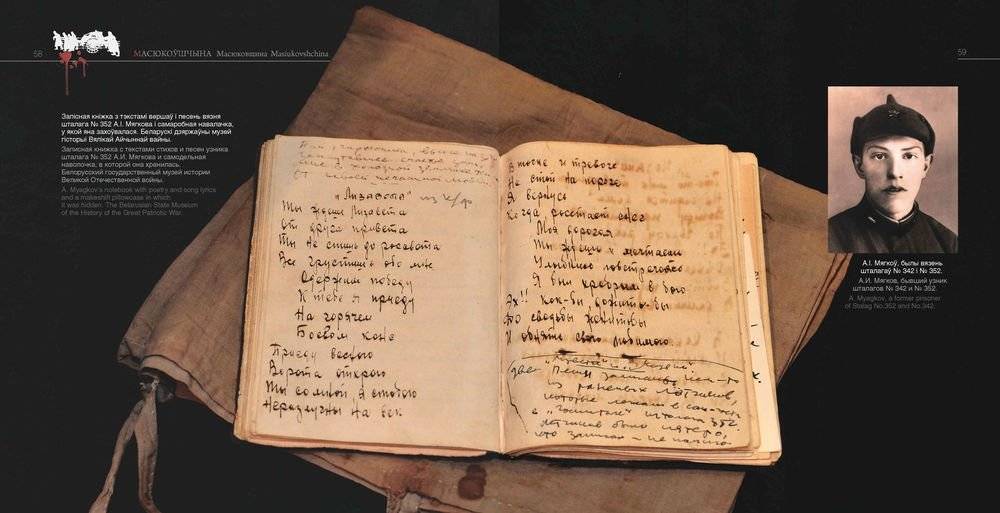 58
МАСЮКОЎШЧЫНА Масюковщина Masiukovshchina
Запісная кніжка з тэкстамі вершаў і песень вязня
шталага № 352 А.І. Мягкова і самаробная навалачка,
у якой яна захоўвалася. Беларускі дзяржаўны музей
гісторыі Вялікай Айчыннай вайны.
Записная книжка с текстами стихов и песен узника
шталага № 352 А.И. Мягкова и самодельная
наволочка, в которой она хранилась.
Белорусский государственный музей истории
Великой Отечественной войны.
A. Myagkov's notebook with poetry and song lyrics
and a makeshift pillowcase in which
it was hidden. The Belarusian State Museum
of the History of the Great Patriotic War.
"Лизавета" из к/ф
Ты ждешь Лизавета
От друга привета
Ты не спишь до рассвета
Все грустишь обо мне
Одержим победу
К тебе я приеду
На горячем
Боевом коне
Приеду весною
Ворота открою
Ты со мной, я с тобою
Неразлучны на век
В тоске и тревоге
Не стой на пороге
Я вернусь
Когда растает снег
Моя дорогая
Ты ждешь и мечтаешь
Улыбкою повстречаешь
Я был храбрым в бою
Эх!! как-бы дожить-бы
До свадьбы женитьбы
И обнять свою любимую.
Песни записаны
из раненых летчиков,
которые лежали в
шталага 352.
59
А.І. Мягкоў, былы вязень
шталагаў № 342 і № 352.
А.И. Мягков, бывший узник
шталагов № 342 и № 352
A. Myagkov, a former prisoner
of Stalag No.352 and No.342.